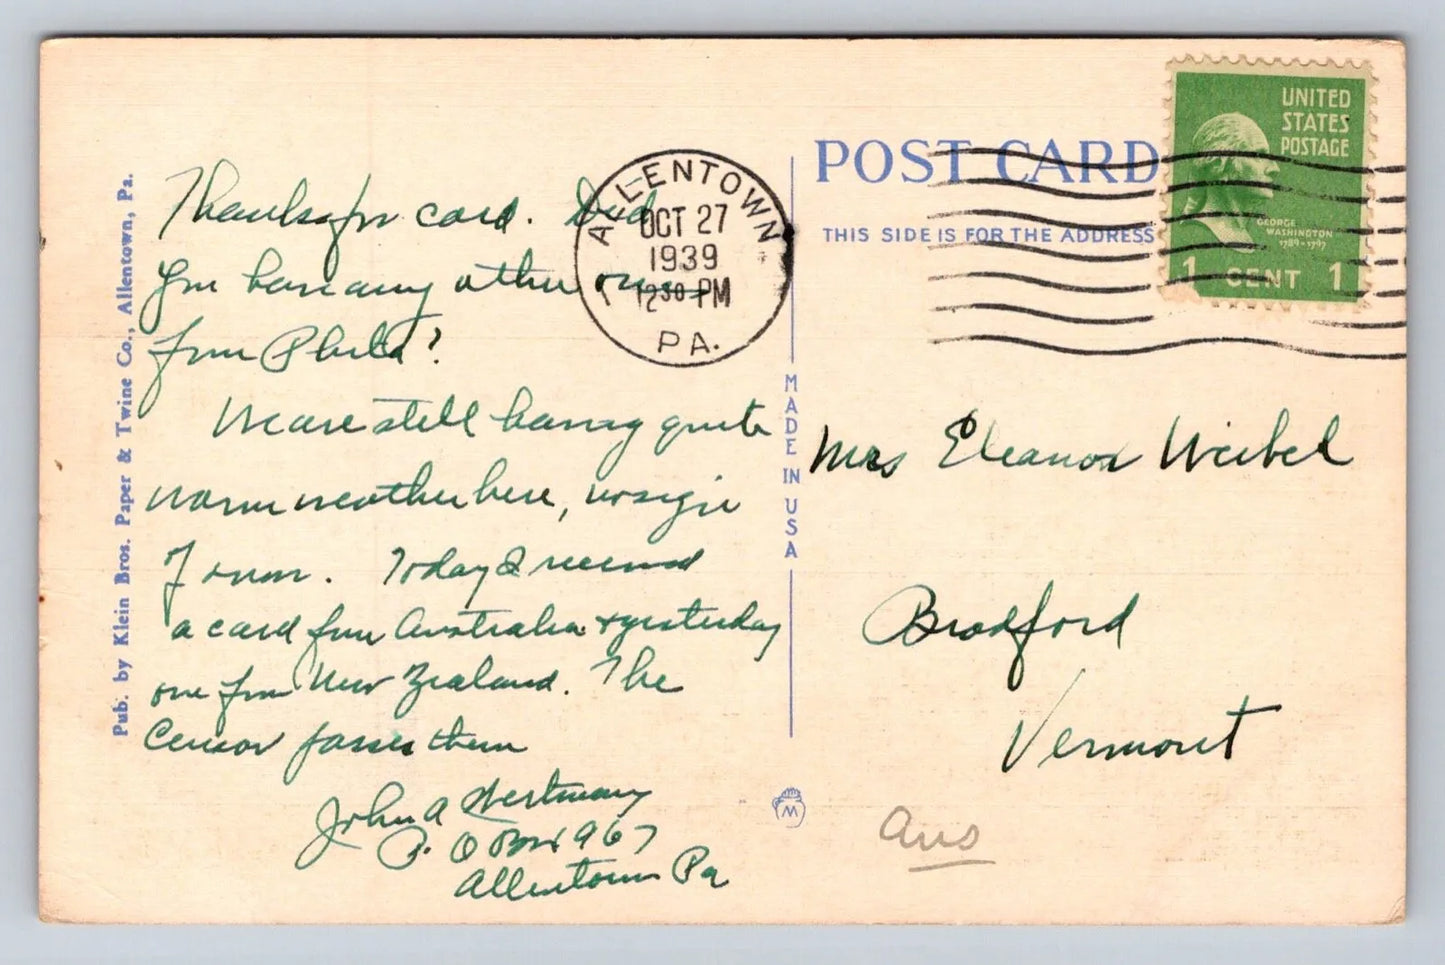 Pub. by Klein Bros. Paper & Twine Co., Allentown, Pa.
Thanks for card. Did
you have any other ones
from Phila?
We are still having quite
warm weather here, no sign
of snow. Today I received
a card from Australia & yesterday
one from New Zealand. The
Censor passes them
John A
P. O Box 967
Allentown Pa
ALLENTOWN
OCT 27
1939
12 30 PM
PA.
MADE IN USA
POST CARD
THIS SIDE IS FOR THE ADDRESS
UNITED
STATES
POSTAGE
GEORGE
WASHINGTON
1789-1797
1 CENT 1
Mrs Eleanor Weibel
Bradford
Vermont
M
Ans